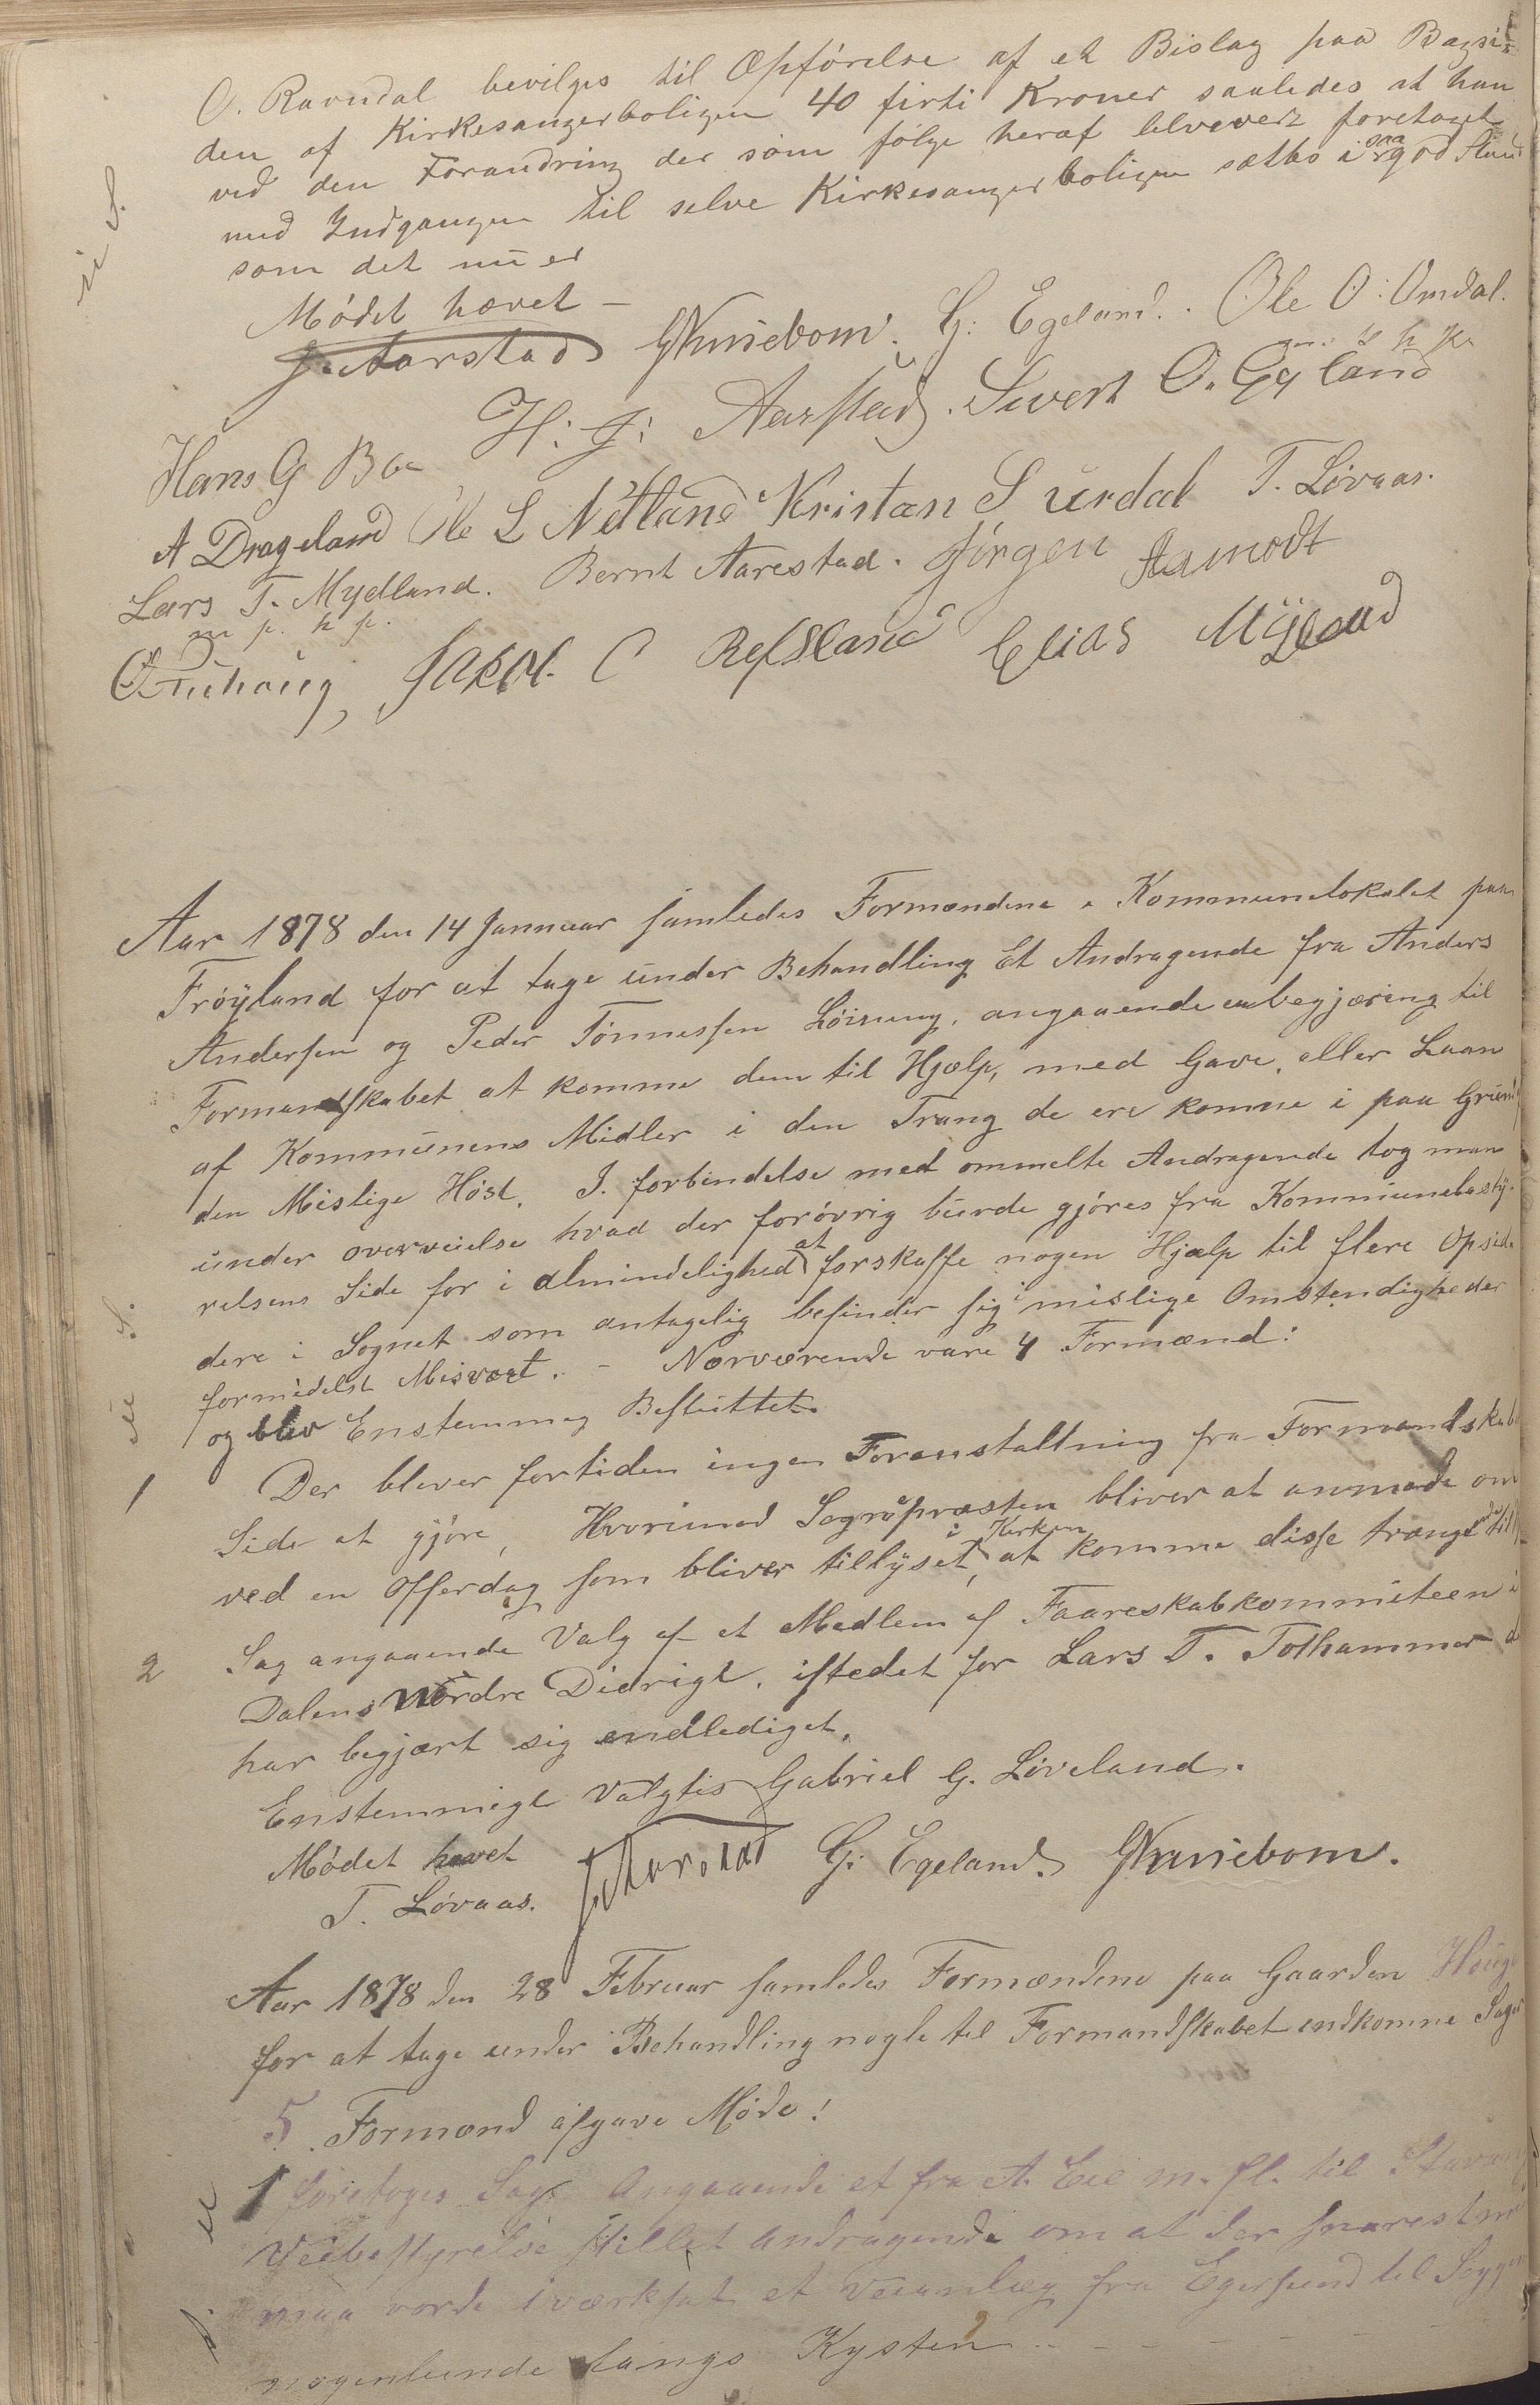 O. Ravndal bevilges til Opførelse af et Bislag paa Bagsi-
den af Kirkesangerboligen 40 firti Kroner saaledes at han
ved den Forandring der som følge heraf blevevet foretaget
med Indgangen til selve Kirkesangerboligen sættes i saa god Stand
som det nu er
Mødet hævet –
J. Aarstad GKunsebom. G: Egeland. Ole O: Omdal.
m. p. h. p.
Hans G Bøe H: J: Aarstad. Sivert O. Eg land
A Drageland Ole L Netland Kristan S urdal T. Løvaas.
Lars T. Mydland. Bernt Aarestad. Jörgen Aamodt
m p. h p.
Jakob C Refsland Elias Myland
Aar 1878 den 14 Januar samledes Formændene i Kommunelokalet paa
Frøyland for at tage under Behandling Et Andragende fra Anders
Andersen og Peder Tønnessen Löining, angaaende en begjæring til
Formandskabet at komme dem til Hjælp, med Gave, eller Laan
af Kommunens Midler i den Trang de ere komne i paa Grund
den Mislige Høst. I. forbindelse med ommelte Andragende tog man
under overveielse hvad der forøvrig burde gjøres fra Kommunebesty-
relsens Side for i almindelighed at forskaffe nogen Hjælp til flere Opsid-
dere i Sognet som antagelig befinder sig i mislige Omstendigheder
formedelst Misvæxt. – Nærværende vare 4 Formænd:
og blev Enstemmig Besluttet.
1 Der blever fortiden ingen Foranstaltning fra Formandskab
Side at gjøre, Hvorimod Sognepræsten bliver at anmode om
ved en Offerdag som bliver tillyset i Kirken, at komme disse trængende til
2 Sag angaaende Valg af et Medlem af Faareskabkommiteen i
Dalens Nordre Distrigt, istedet for Lars T. Tothammer d
har begjært sig endlediget.
Enstemmigt Valgtes Gabriel G. Løveland.
Mødet hævet
T. Løvaas. J. Aarstad G: Egeland. GKunsebom.
Aar 1878 den 28 Februar samledes Formændene paa Gaarden Houge
for at tage under Behandling nogle til Formandskabet indkomne Sager
5 Formænd afgave Møde!
1 foretoges Sag. Angaaende et fra A. Eie m. fl. til Stavang
Veibestyrelse stillet andragende om at der snarest m
maa vorde iværksat et veianlæg fra Egersund til Sogn
nogenlunde langs Kysten